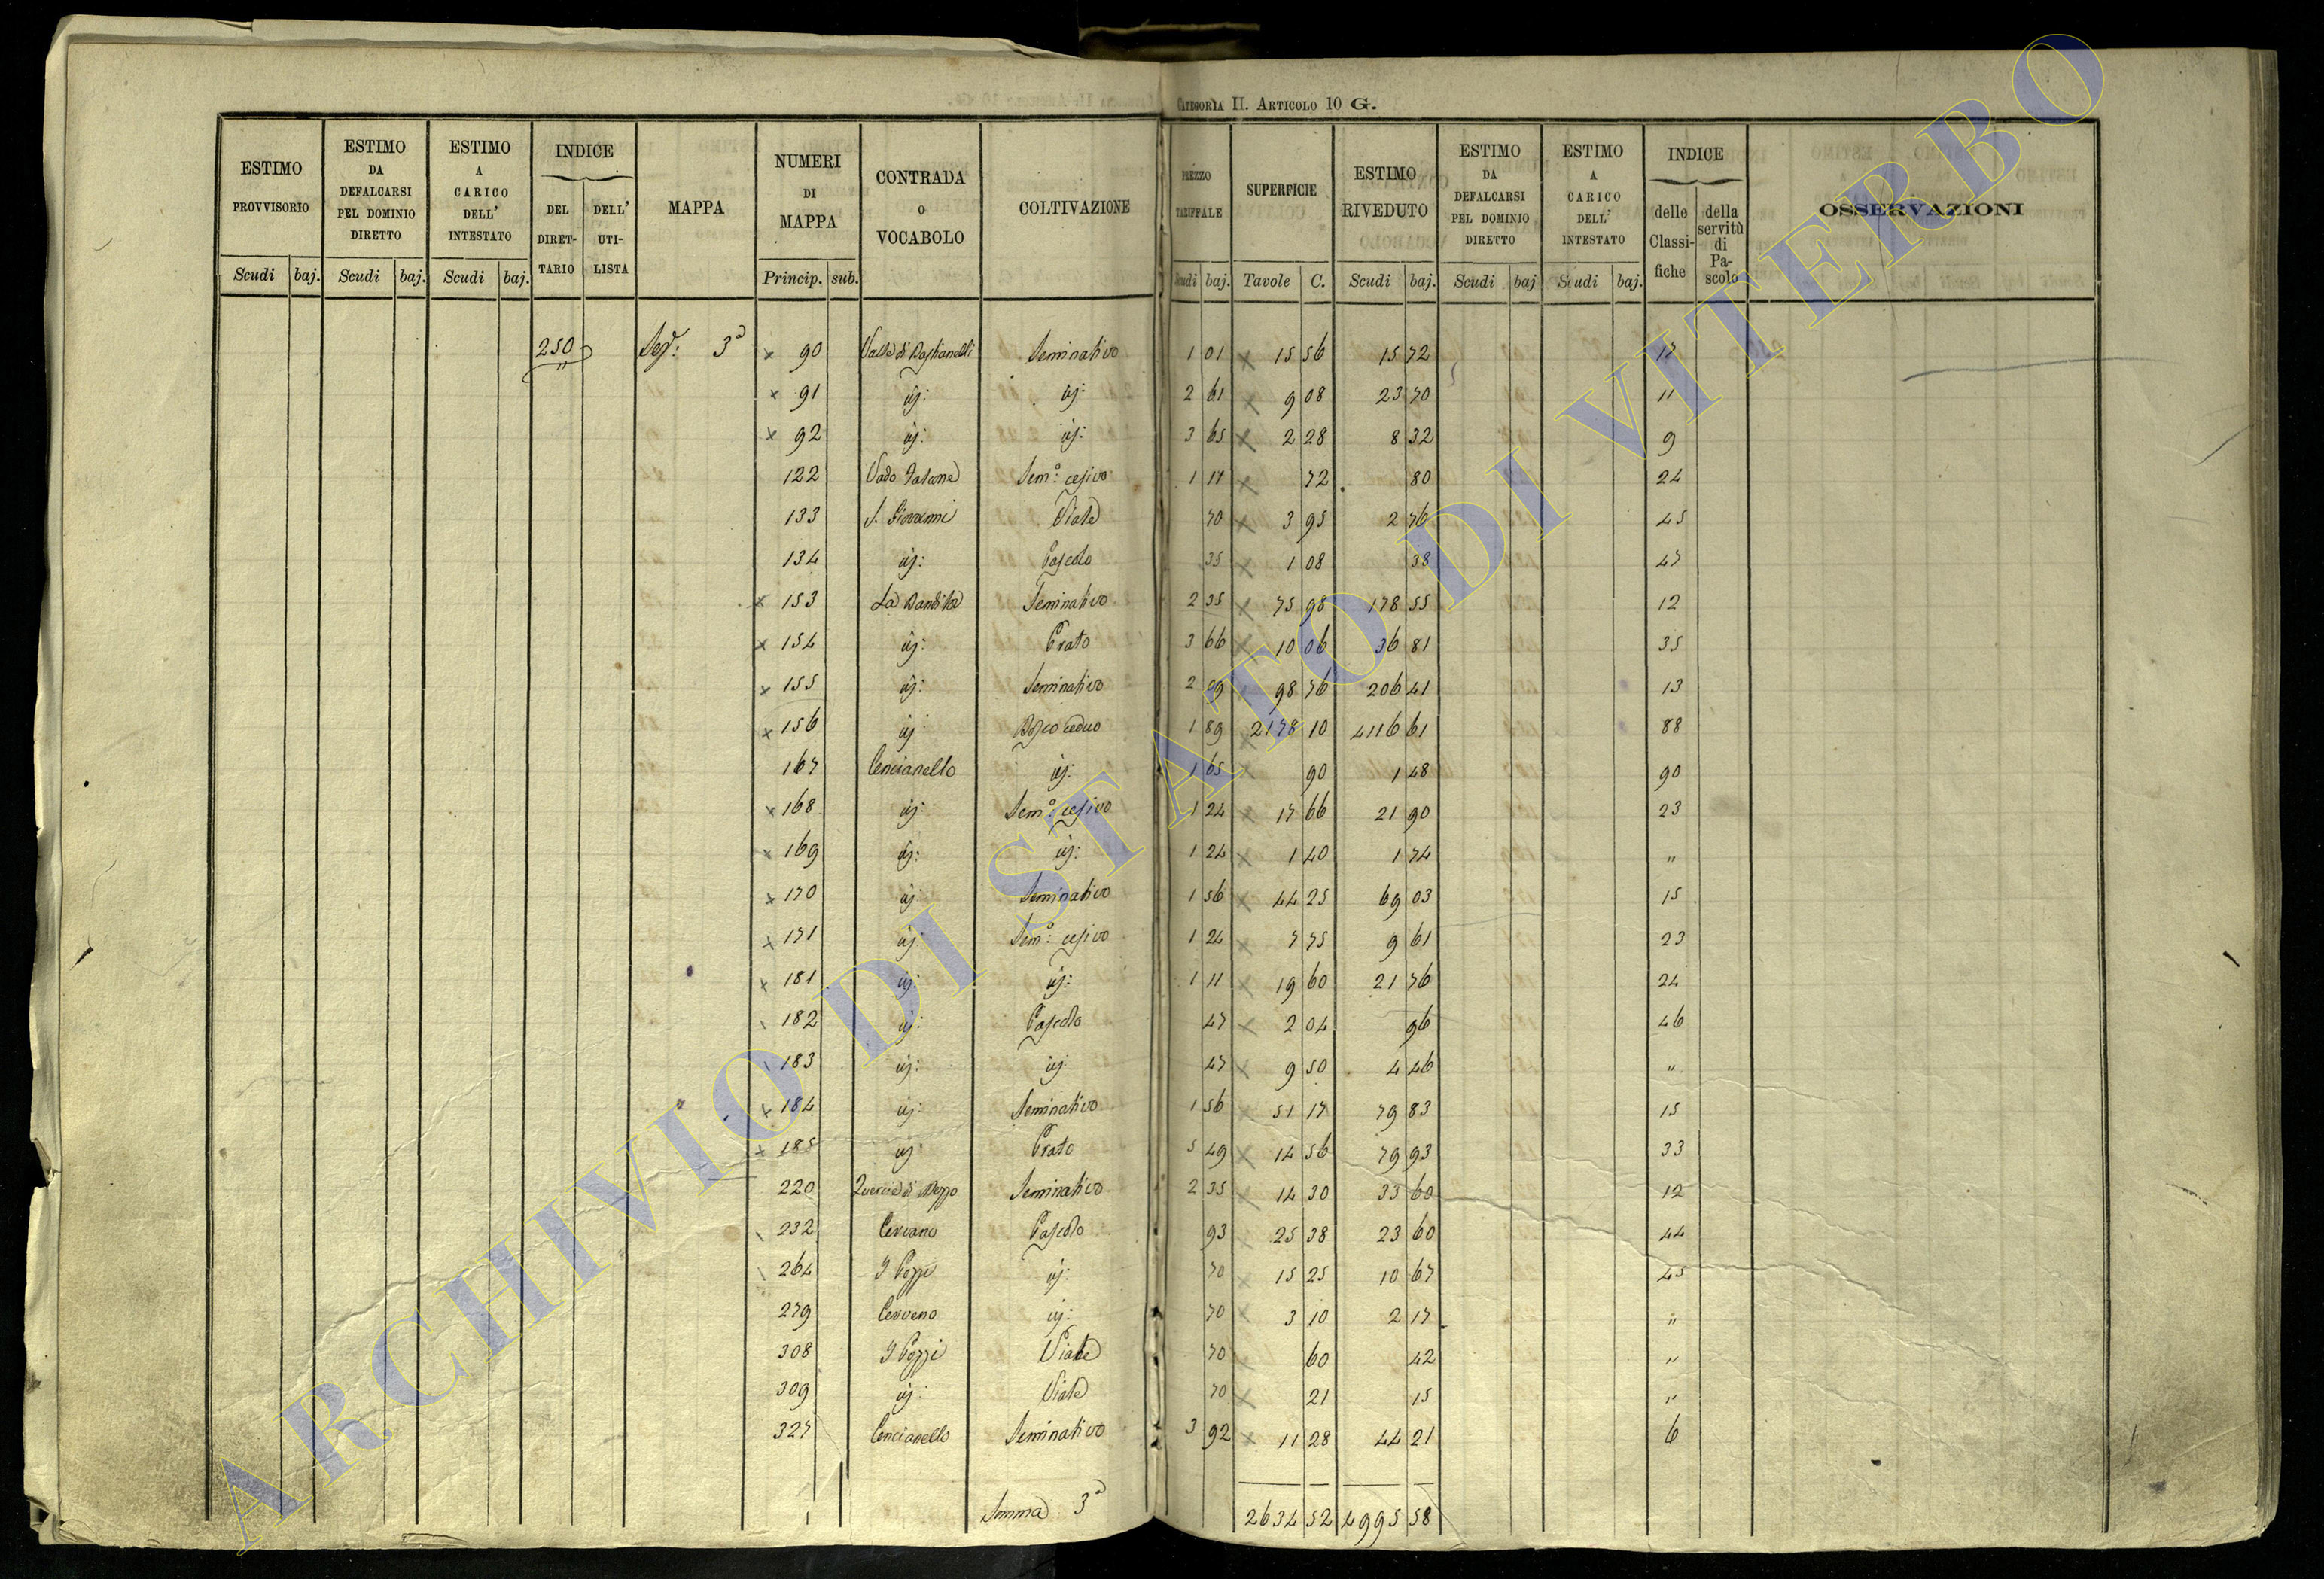 CATEGORIA II. ARTICOLO 10 G.
ESTIMO PROVVISORIO Scudi baj.
ESTIMO DA DEFALCARSI PEL DOMINIO DIRETTO Scudi baj.
ESTIMO A CARICO DELL' INTESTATO Scudi baj.
INDICE DEL DIRETTARIO DELL' UTILISTA
MAPPA
NUMERI DI MAPPA Princip. sub.
CONTRADA O VOCABOLO
COLTIVAZIONE
PREZZO TARIFFALE Scudi baj.
SUPERFICIE Tavole C.
ESTIMO RIVEDUTO Scudi baj.
ESTIMO DA DEFALCARSI PEL DOMINIO DIRETTO Scudi baj
ESTIMO A CARICO DELL' INTESTATO Scudi baj.
INDICE delle Classifiche della servitù di Pascolo
OSSERVAZIONI
250 Sez: 3ª × 90 Valle di Seminativo 1 01 × 15 56 15 72 17
× 91 iḋ: iḋ: 2 61 × 9 08 23 70 11
× 92 iḋ: iḋ: 3 65 × 2 28 8 32 9
122 Vado Sem.º cesivo 1 11 × 72 80 24
133 S. Giovanni 70 × 3 95 2 76 45
134 iḋ: Pascolo 35 × 1 08 38 47
× 153 La Bandita Seminativo 2 35 × 75 98 178 55 12
× 154 iḋ: Prato 3 66 × 10 06 36 81 35
× 155 iḋ: Seminativo 2 09 98 76 206 41 13
× 156 iḋ Bosco ceduo 1 89 × 2178 10 4116 61 88
167 Cencianello iḋ: 1 65 × 90 1 48 90
× 168 iḋ: Sem.º cesivo 1 24 × 17 66 21 90 23
× 169 iḋ: iḋ: 1 24 × 1 40 1 74 "
× 170 iḋ: Seminativo 1 56 × 44 25 69 03 15
× 171 iḋ: Sem.º cesivo 1 24 × 7 75 9 61 23
× 181 iḋ: iḋ: 1 11 × 19 60 21 76 24
182 iḋ: Pascolo 47 × 2 04 96 46
183 iḋ: iḋ 47 × 9 50 4 46 "
× 184 iḋ: Seminativo 1 56 × 51 17 79 83 15
× 185 iḋ: Prato 5 49 × 14 56 79 93 33
220 Quercia di Mezzo Seminativo 2 35 × 14 30 33 60 12
232 Pascolo 93 × 25 38 23 60 44
264 I Pozzi iḋ: 70 × 15 25 10 67 45
279 iḋ: 70 × 3 10 2 17 "
308 I Pozzi 70 60 42 "
309 iḋ: 70 × 21 15 "
327 Cencianello Seminativo 3 92 × 11 28 44 21 6
Somma 3ª 2634 52 4995 58
ARCHIVIO DI STATO DI VITERBO